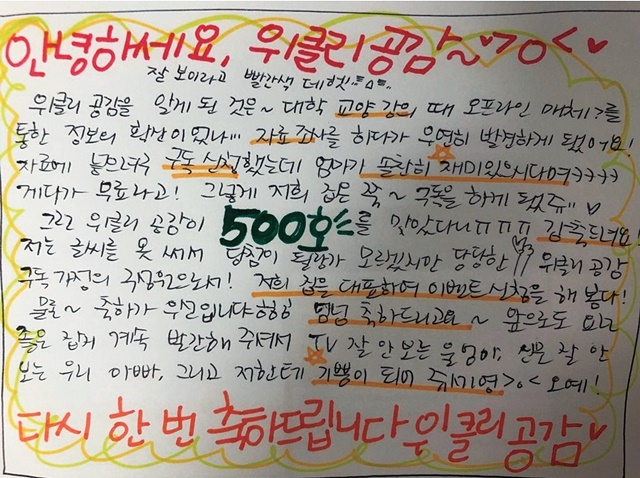 안녕하세요, 위클리 공감~>o<♥
잘 보이라고 빨간색 데헷
위클리 공감을 알게 된 것은~ 대학 교양 강의 때 오프라인 매체를
통한 정보의 확산이었나... 자료 조사를 하다가 우연히 발견하게 됐어요!
자료에 구독 신청했는데 엄마가 재미있으시다며ㅋㅋㅋㅋ
게다가 무료라고! 그렇게 저희 집은 쭉~ 구독을 하게 됐쥬 ♥
그리고 위클리 공감이 500호를 맞았다니ㅠㅠㅠ 감축드려요!
저는 글씨를 못 써서 당첨이 될랑가 모르겠지만 당당한 위클리 공감
구독 가정의 구성원으로서! 저희 집을 대표하여 이벤트 신청을 해 봅니다!
물론~ 축하가 우선입니다하하하 축하드리고요~ 앞으로도 요런
좋은 잡지 계속 발간해 주셔서 TV 잘 안 보는 울 엄마, 신문 잘 안
보는 우리 아빠, 그리고 저한테 기쁨이 되어 주세영>o< 오예!
다시 한 번 축하드립니다 위클리 공감♥